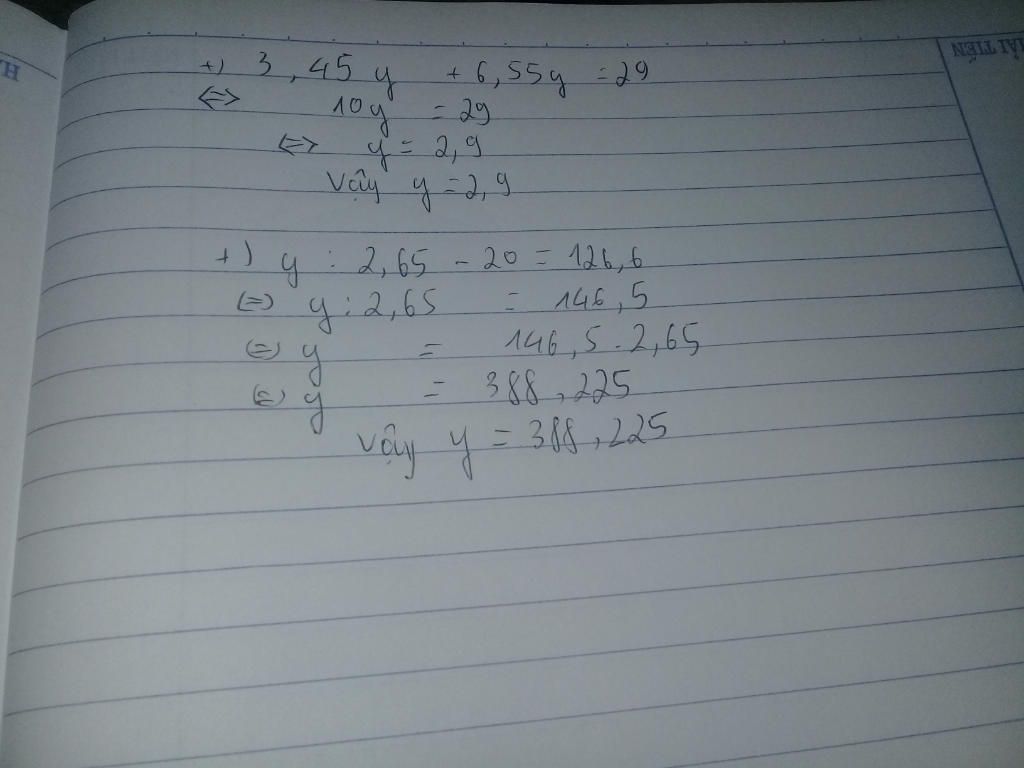 +) 3,45y + 6,55y = 29
<=> 10y = 29
<=> y = 2,9
Vậy y = 2,9
+) y : 2,65 - 20 = 126,6
(=) y : 2,65 = 146,5
(=) y = 146,5 . 2,65
(=) y = 388,225
Vậy y = 388,225
ẢI TIẾN
H